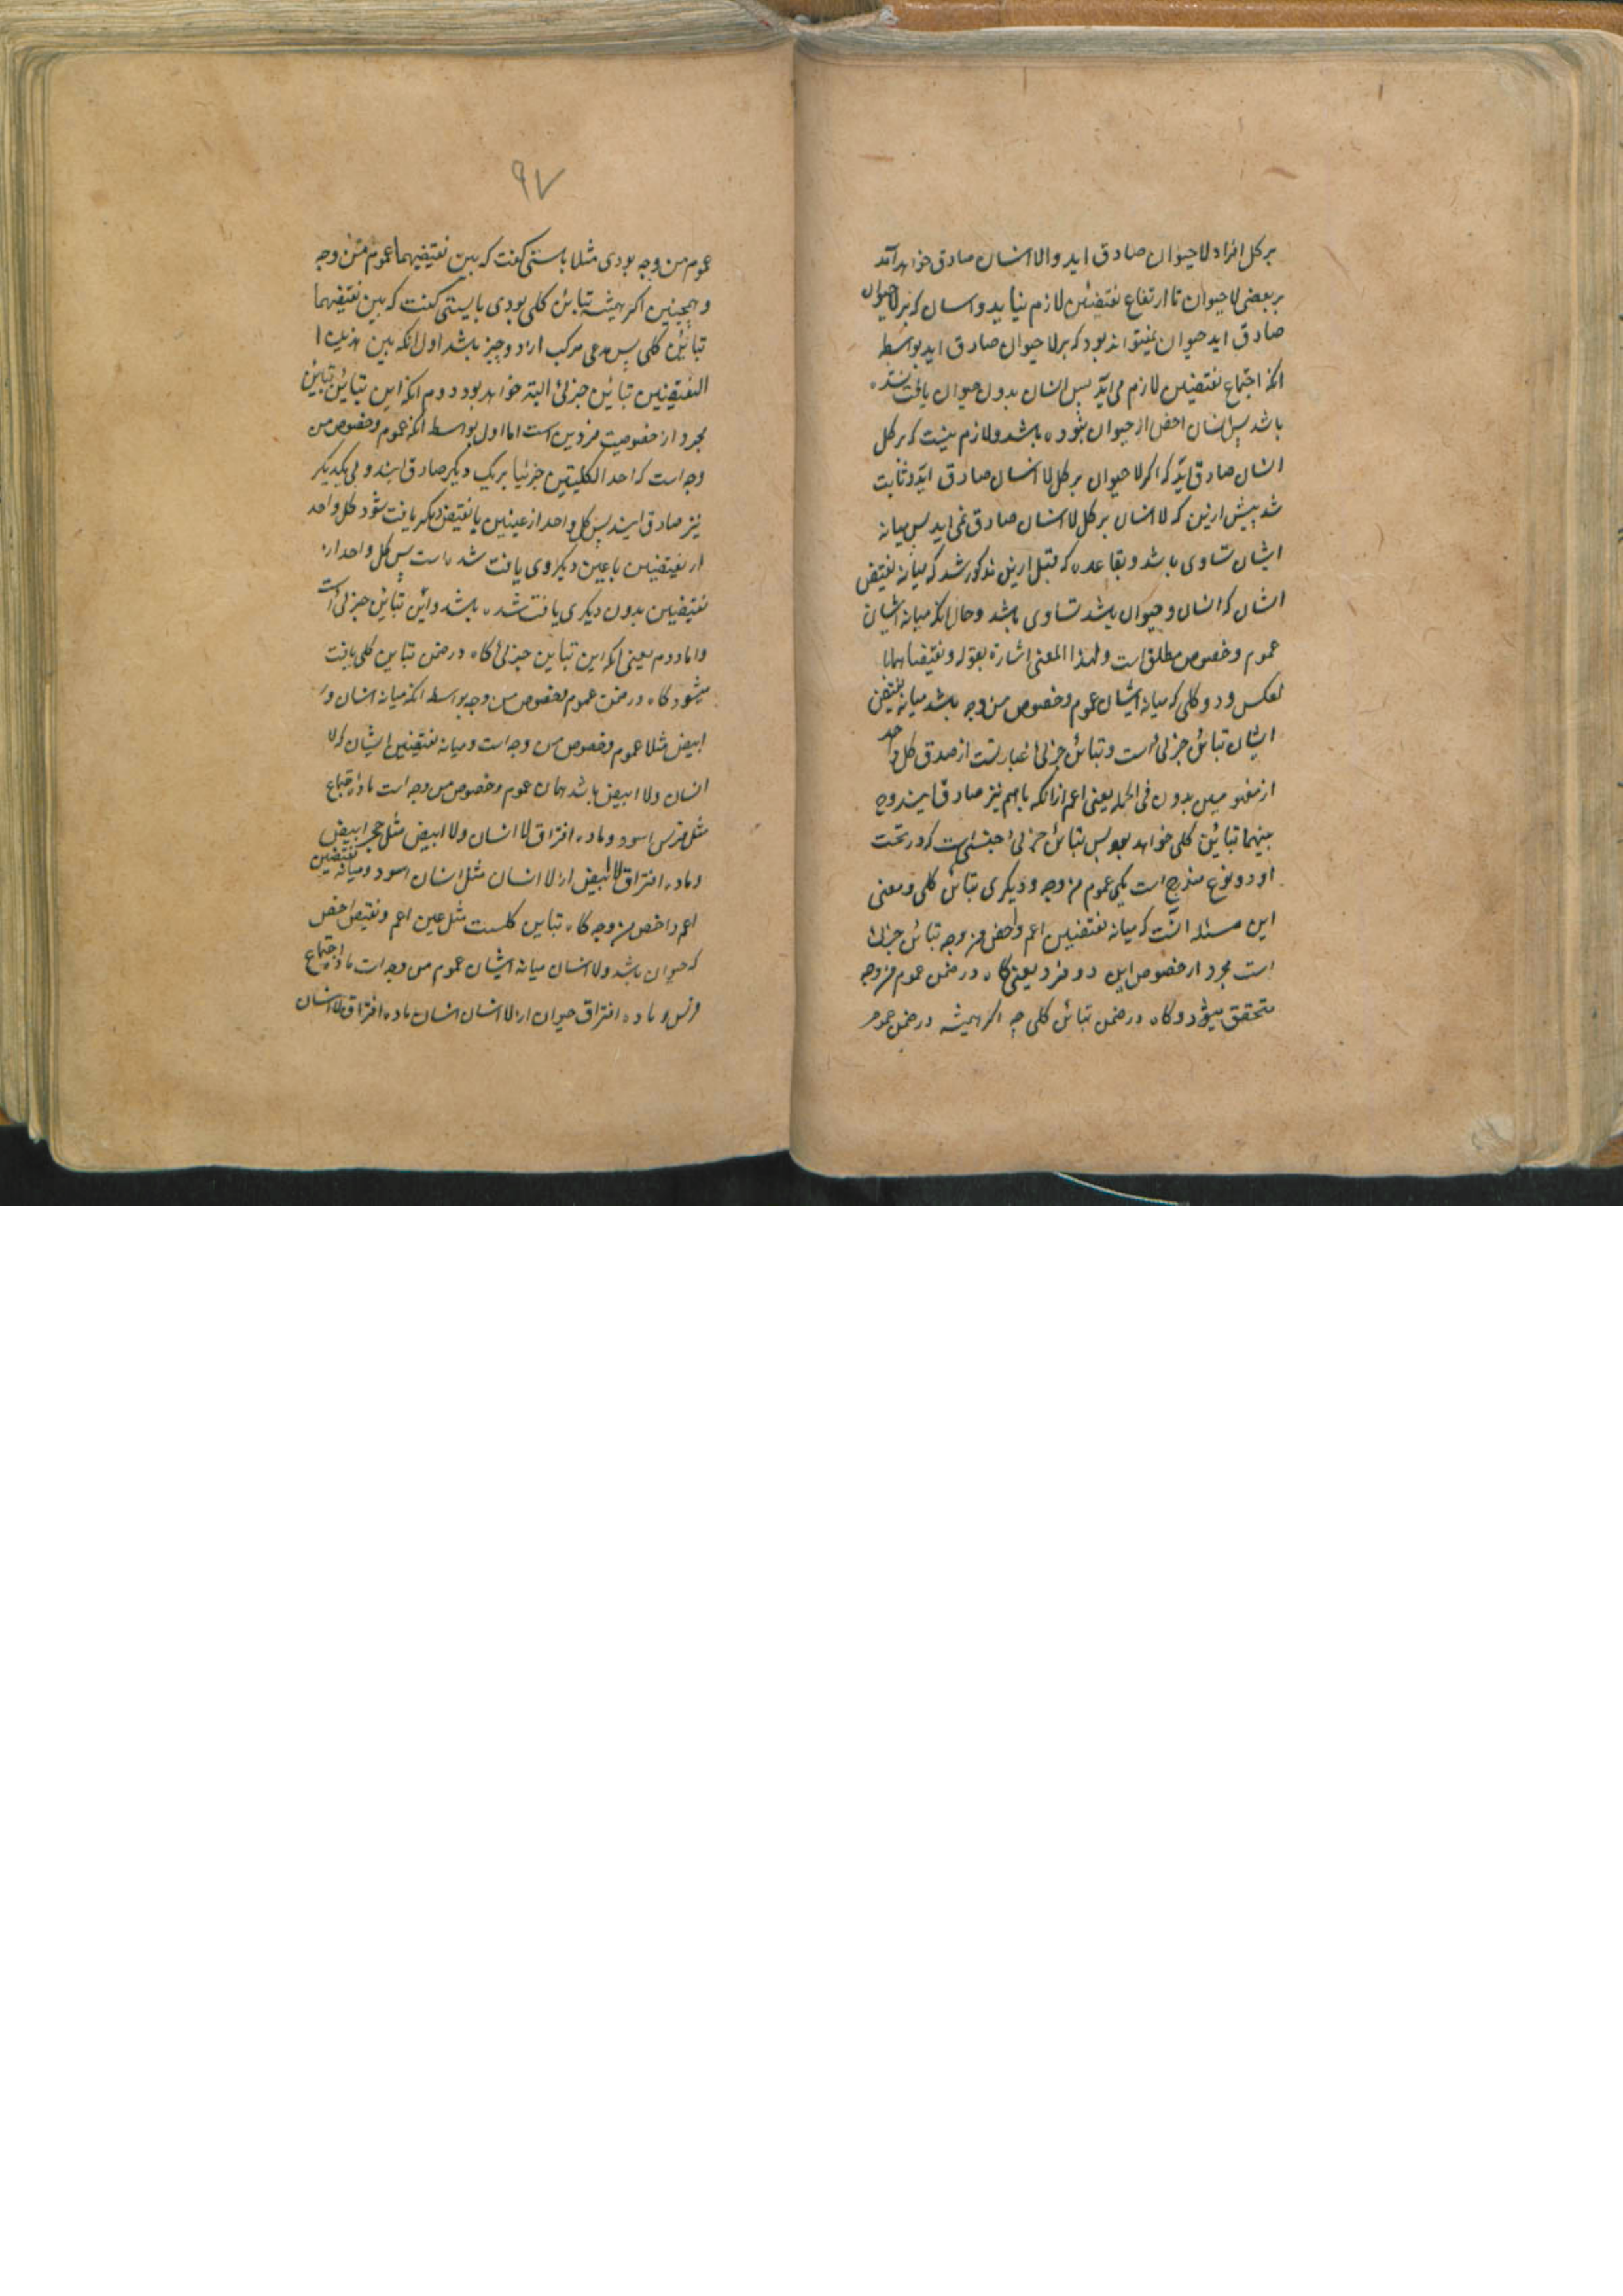 بر کل افراد لا حیوان صادق اید و الا انسان صادق خواهد آمد
بر بعضی لا حیوان تا ارتفاع نقیضین لازم نیاید و انسان که بر لا حیوان
صادق اید حیوان نمیتواند بود که بر لا حیوان صادق اید بواسطه
انکه اجتماع نقیضین لازم می آید پس انسان بدون حیوان یافت شده
باشد پس انسان اخص از حیوان نبوده باشد و لازم نیست که بر کل
انسان صادق آید که اگر لا حیوان بر کل لا انسان صادق آید و ثابت
شد پیش ازین که لا انسان بر کل لا انسان صادق می اید پس میانه
ایشان تساوی باشد و بقاعده که قبل ازین مذکور شد که میانه نقیض
ایشان که انسان و حیوان باشد تساوی باشد و حال انکه میانه ایشان
عموم و خصوص مطلق است و لهذا المعنی اشارة بقوله و نقیضاهما
بعکس و دو کلی که میانه ایشان عموم و خصوص من وجه باشد میانه نقیضین
ایشان تباین جزئی است و تباین جزئی عبارتست از صدق کل واحد
از مفهومین بدون فی الجمله یعنی اعم ازانکه باهم نیز صادق آیند و ح
بینهما تباین کلی خواهد بود پس تباین جزئی جنسی است که در تحت
او دو نوع مندرج است یکی عموم من وجه و دیگری تباین کلی و معنی
این مسئله انست که میانه نقیضین اعم و اخص من وجه تباین جزئی
است مجرد از خصوص این دو فرد یعنی گاه در ضمن عموم من وجه
متحقق میشود و گاه در ضمن تباین کلی چه اگر همیشه در ضمن عموم
۹۷
عموم من وجه بودی مثلا بایستی گفت که بین نقیضیهما عموم من وجه
و همچنین اگر همیشه تباین کلی بودی بایستی گفت که بین نقیضیهما
تباین کلی پس مدعی مرکب از دو چیز باشد اول انکه بین هذین ا
النقیضین تباین جزئی البته خواهد بود دوم انکه این تباین تباین
مجرد از خصوصیت فردین است اما اول بواسطه انکه عموم و خصوص من
وجه است که احد الکلیتین جزئیا بر یک دیگر صادق ایند و بی یکدیگر
نیز صادق ایند پس کل واحد از عینین با نقیض دیگر یافت شود کل واحد
از نقیضین با عین دیگری یافت شده است پس کل واحد از
نقیضین بدون دیگری یافت شده باشد و این تباین جزئی است
و اما دوم یعنی انکه این تباین جزئی گاه در ضمن تباین کلی یافت
میشود گاه در ضمن عموم و خصوص من وجه بواسطه انکه میانه انسان و
ابیض مثلا عموم و خصوص من وجه است و میانه نقیضین ایشان که لا
انسان و لا ابیض باشد همان عموم و خصوص من وجه است ماده اجتماع
مثل فرس اسود و ماده افتراق لا انسان و لا ابیض مثل حجر ابیض
و ماده افتراق لا ابیض از لا انسان مثل انسان اسود و میانه نقیضین
اعم و اخص من وجه گاه تباین کلیست مثل عین اعم و نقیض اخص
که حیوان باشد و لا انسان میانه ایشان عموم من وجه است ماده اجتماع
فرس و ماده افتراق حیوان از لا انسان انسان ماده افتراق لا انسان